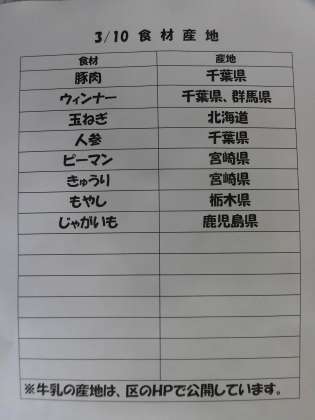 3/10 食材産地
食材 産地
豚肉 千葉県
ウィンナー 千葉県、群馬県
玉ねぎ 北海道
人参 千葉県
ピーマン 宮崎県
きゅうり 宮崎県
もやし 栃木県
じゃがいも 鹿児島県
※牛乳の産地は、区のHPで公開しています。